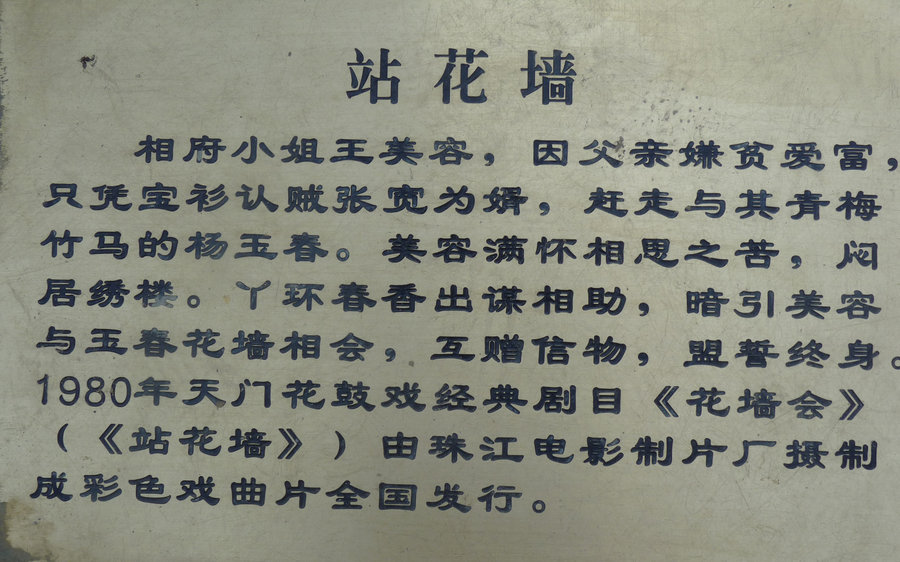 站花墙
相府小姐王美容，因父亲嫌贫爱富，
只凭宝衫认贼张宽为婿，赶走与其青梅
竹马的杨玉春。美容满怀相思之苦，闷
居绣楼。丫环春香出谋相助，暗引美容
与玉春花墙相会，互赠信物，盟誓终身。
1980年天门花鼓戏经典剧目《花墙会》
（《站花墙》）由珠江电影制片厂摄制
成彩色戏曲片全国发行。